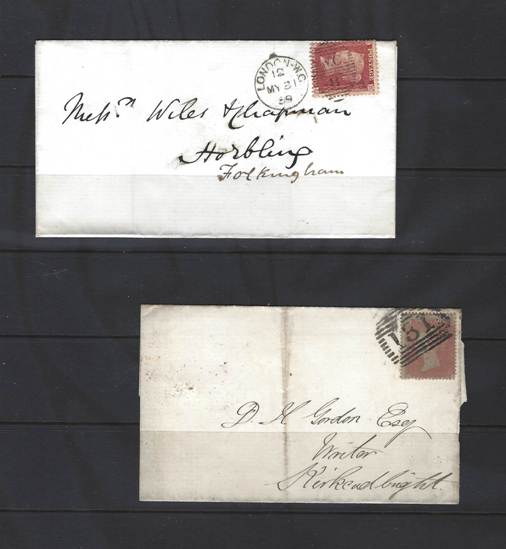 LONDON-W.C
12
MY 21
59
W.C
Messrs Wiles & Chapman
Horbling
Folkingham
131
D. H. Gordon Esq
Writer
Kirkcudbright.